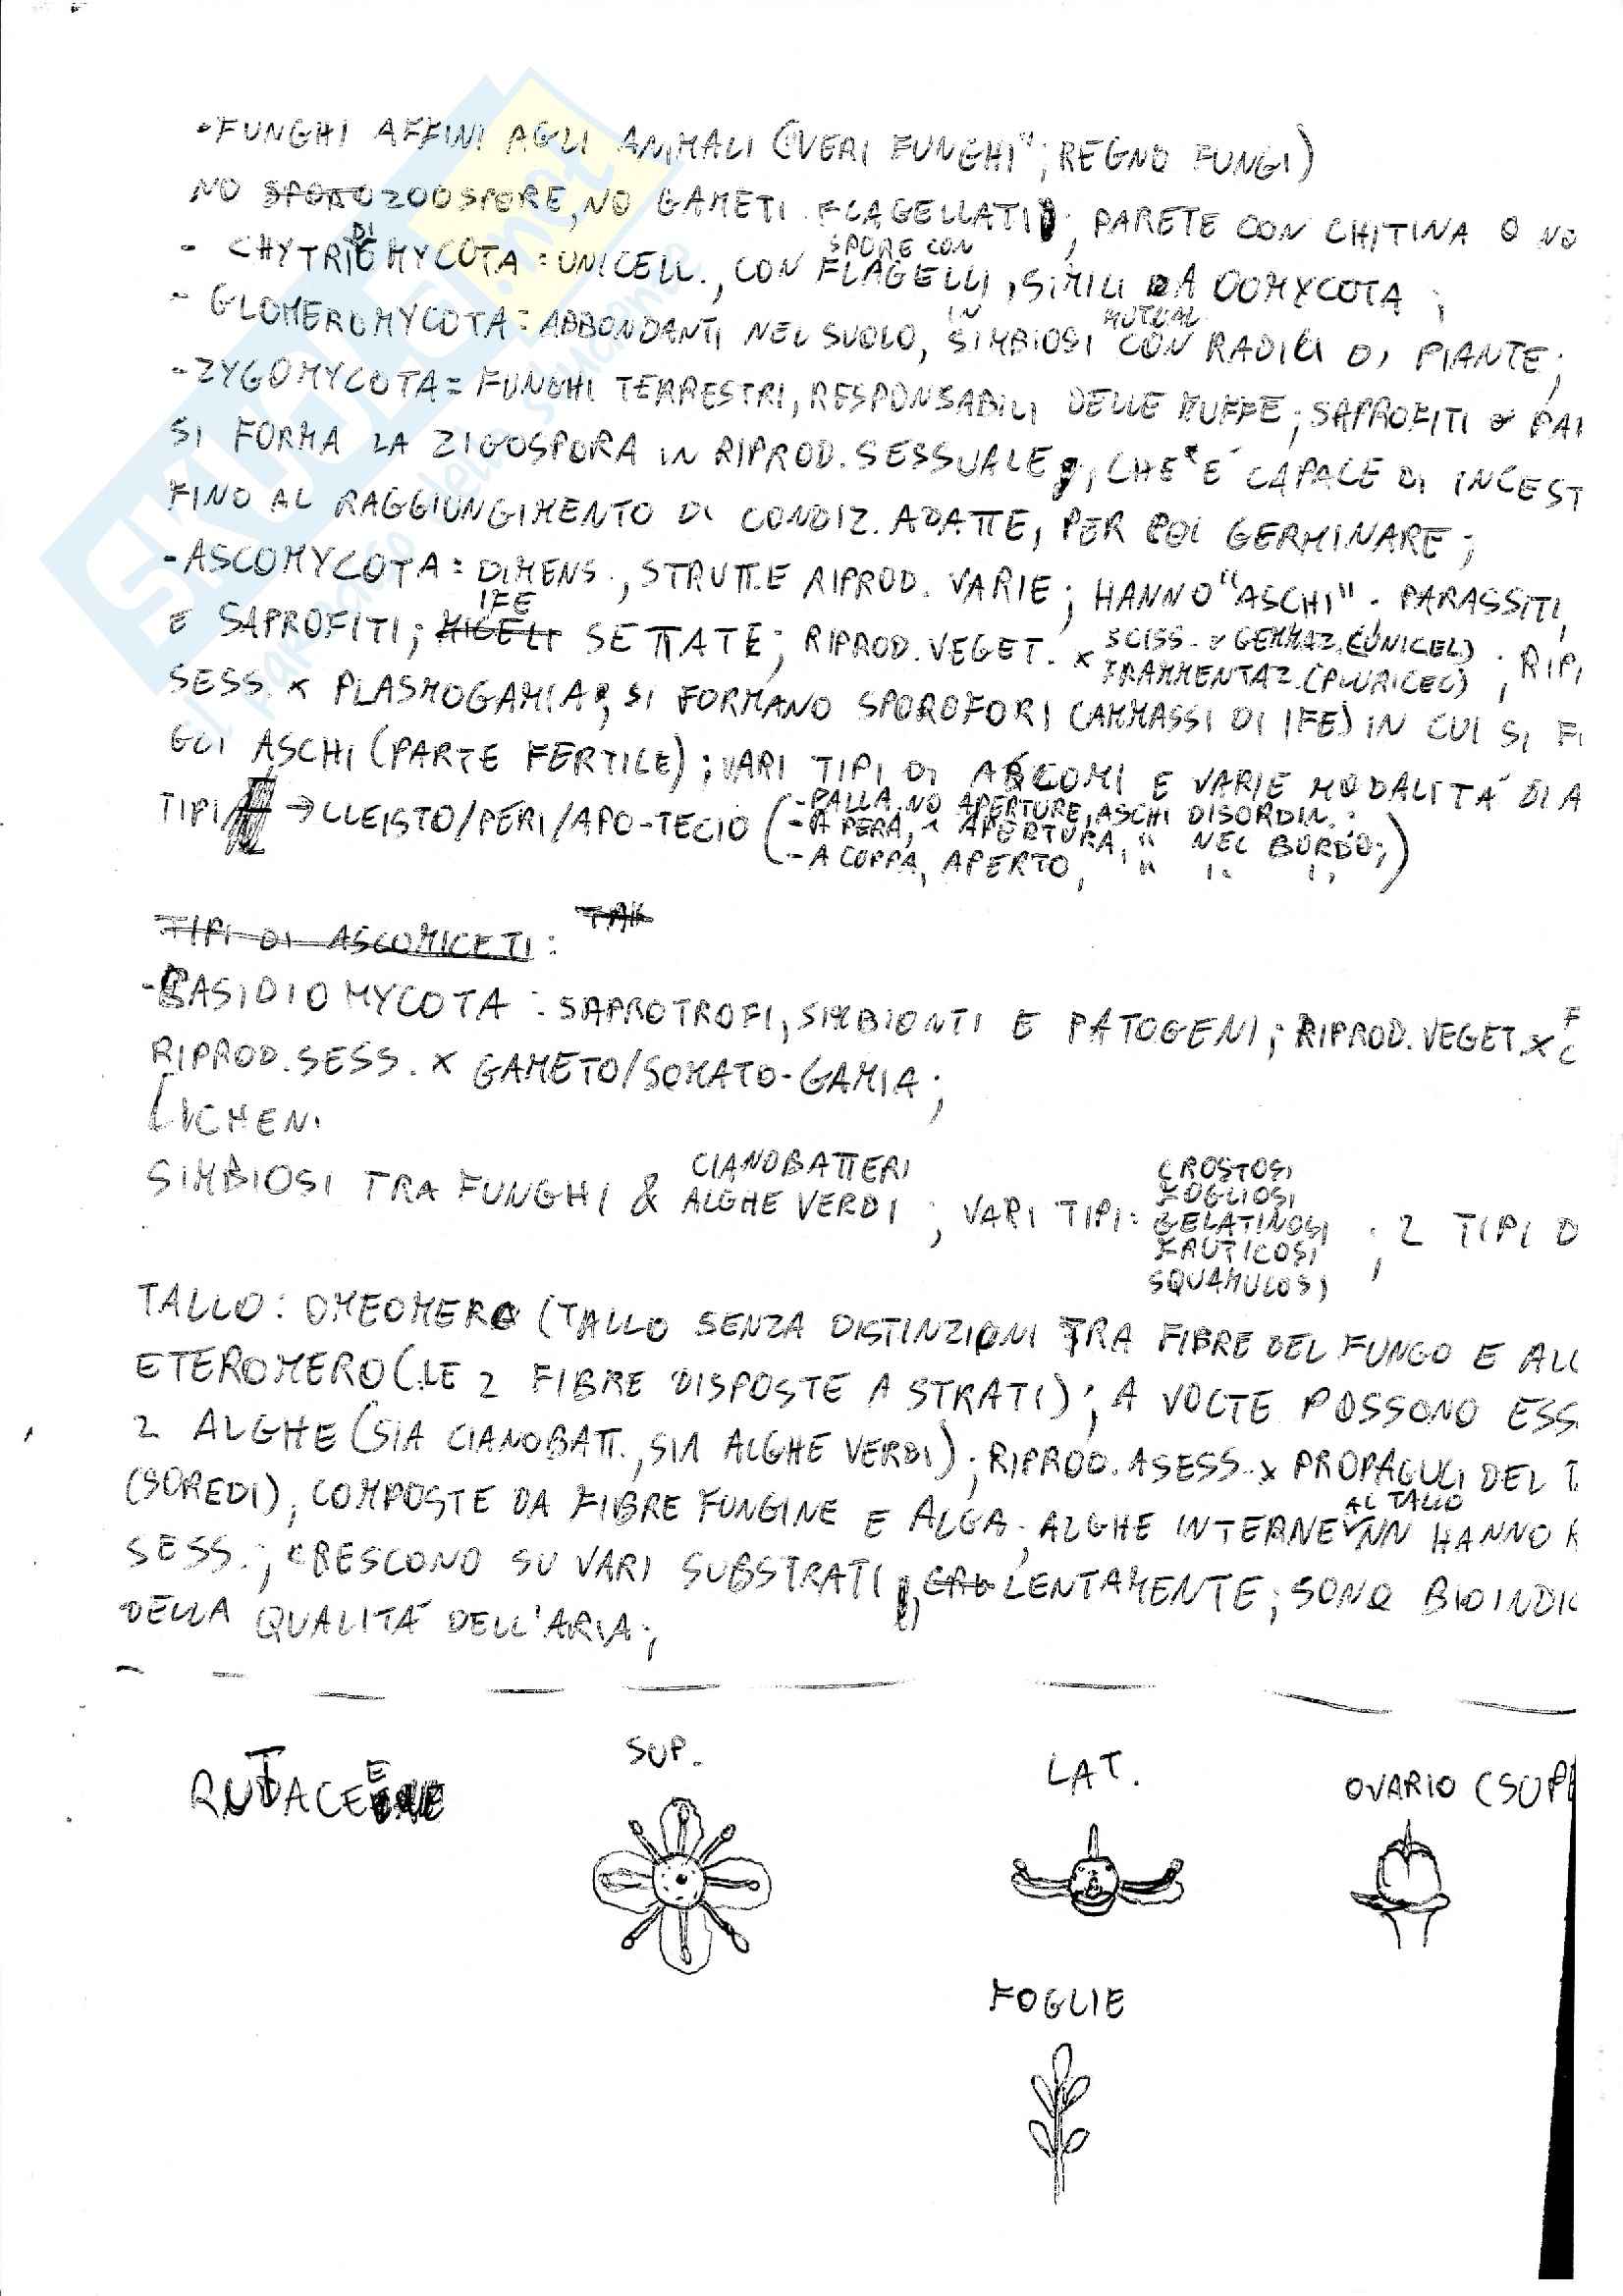 -FUNGHI AFFINI AGLI ANIMALI ("VERI FUNGHI"; REGNO FUNGI)
NO ZOOSPORE, NO GAMETI FLAGELLATI; PARETE CON CHITINA O NO
- CHYTRIDIOMYCOTA = UNICELL., CON SPORE CON FLAGELLI, SIMILI A OOMYCOTA;
- GLOMEROMYCOTA = ABBONDANTI NEL SUOLO, IN SIMBIOSI MUTUAL. CON RADICI DI PIANTE;
- ZYGOMYCOTA = FUNGHI TERRESTRI, RESPONSABILI DELLE MUFFE; SAPROFITI o PAR
SI FORMA LA ZIGOSPORA IN RIPROD. SESSUALE, CHE È CAPACE DI INCEST
FINO AL RAGGIUNGIMENTO DI CONDIZ. ADATTE, PER POI GERMINARE;
- ASCOMYCOTA = DIMENS., STRUTT. E RIPROD. VARIE; HANNO "ASCHI". PARASSITI,
E SAPROFITI; IFE SETTATE; RIPROD. VEGET. x SCISS. o GEMMAZ. (UNICEL) FRAMMENTAZ. (PLURICEL); RIP
SESS. x PLASMOGAMIA; SI FORMANO SPOROFORI (AMMASSI DI IFE) IN CUI SI F
GLI ASCHI (PARTE FERTILE); VARI TIPI DI ASCOMI E VARIE MODALITÁ DI A
TIPI → CLEISTO/PERI/APO-TECIO (- PALLA, NO APERTURE, ASCHI DISORDIN.;
- A PERA, 1 APERTURA, " NEL BORDO;
- A COPPA, APERTO, " " ";)
TIPI DI ASCOMICETI:
- BASIDIOMYCOTA = SAPROTROFI, SIMBIONTI E PATOGENI; RIPROD. VEGET. x
RIPROD. SESS. x GAMETO/SOMATO-GAMIA;
LICHENI
SIMBIOSI TRA FUNGHI & CIANOBATTERI ALGHE VERDI; VARI TIPI: CROSTOSI FOGLIOSI GELATINOSI FRUTICOSI SQUAMULOSI; 2 TIPI D
TALLO: OMEOMERO (TALLO SENZA DISTINZIONI TRA FIBRE DEL FUNGO E ALG
ETEROMERO (LE 2 FIBRE DISPOSTE A STRATI); A VOLTE POSSONO ESS
2 ALGHE (SIA CIANOBATT., SIA ALGHE VERDI); RIPROD. ASESS. x PROPAGULI DEL T
(SOREDI), COMPOSTE DA FIBRE FUNGINE E ALGA; ALGHE INTERNE AL TALLO NN HANNO R
SESS.; CRESCONO SU VARI SUBSTRATI, LENTAMENTE; SONO BIOINDIC
DELLA QUALITÁ DELL'ARIA;
RUTACEE
SUP.
LAT.
OVARIO (SUPE
FOGLIE